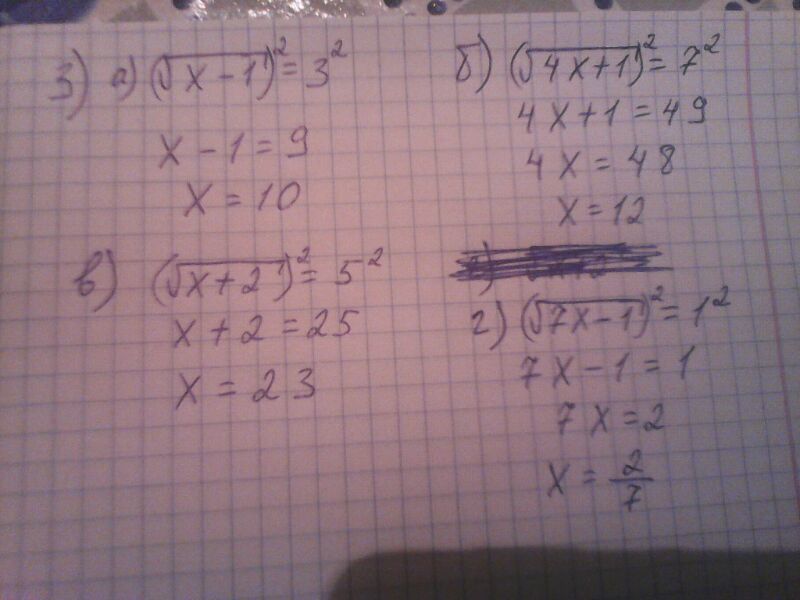 3) а) (√x-1)² = 3²
x - 1 = 9
x = 10
б) (√4x+1)² = 7²
4x+1 = 49
4x = 48
x = 12
в) (√x+2)² = 5²
x + 2 = 25
x = 23
г) (√7x-1)² = 1²
7x - 1 = 1
7x = 2
x = 2/7